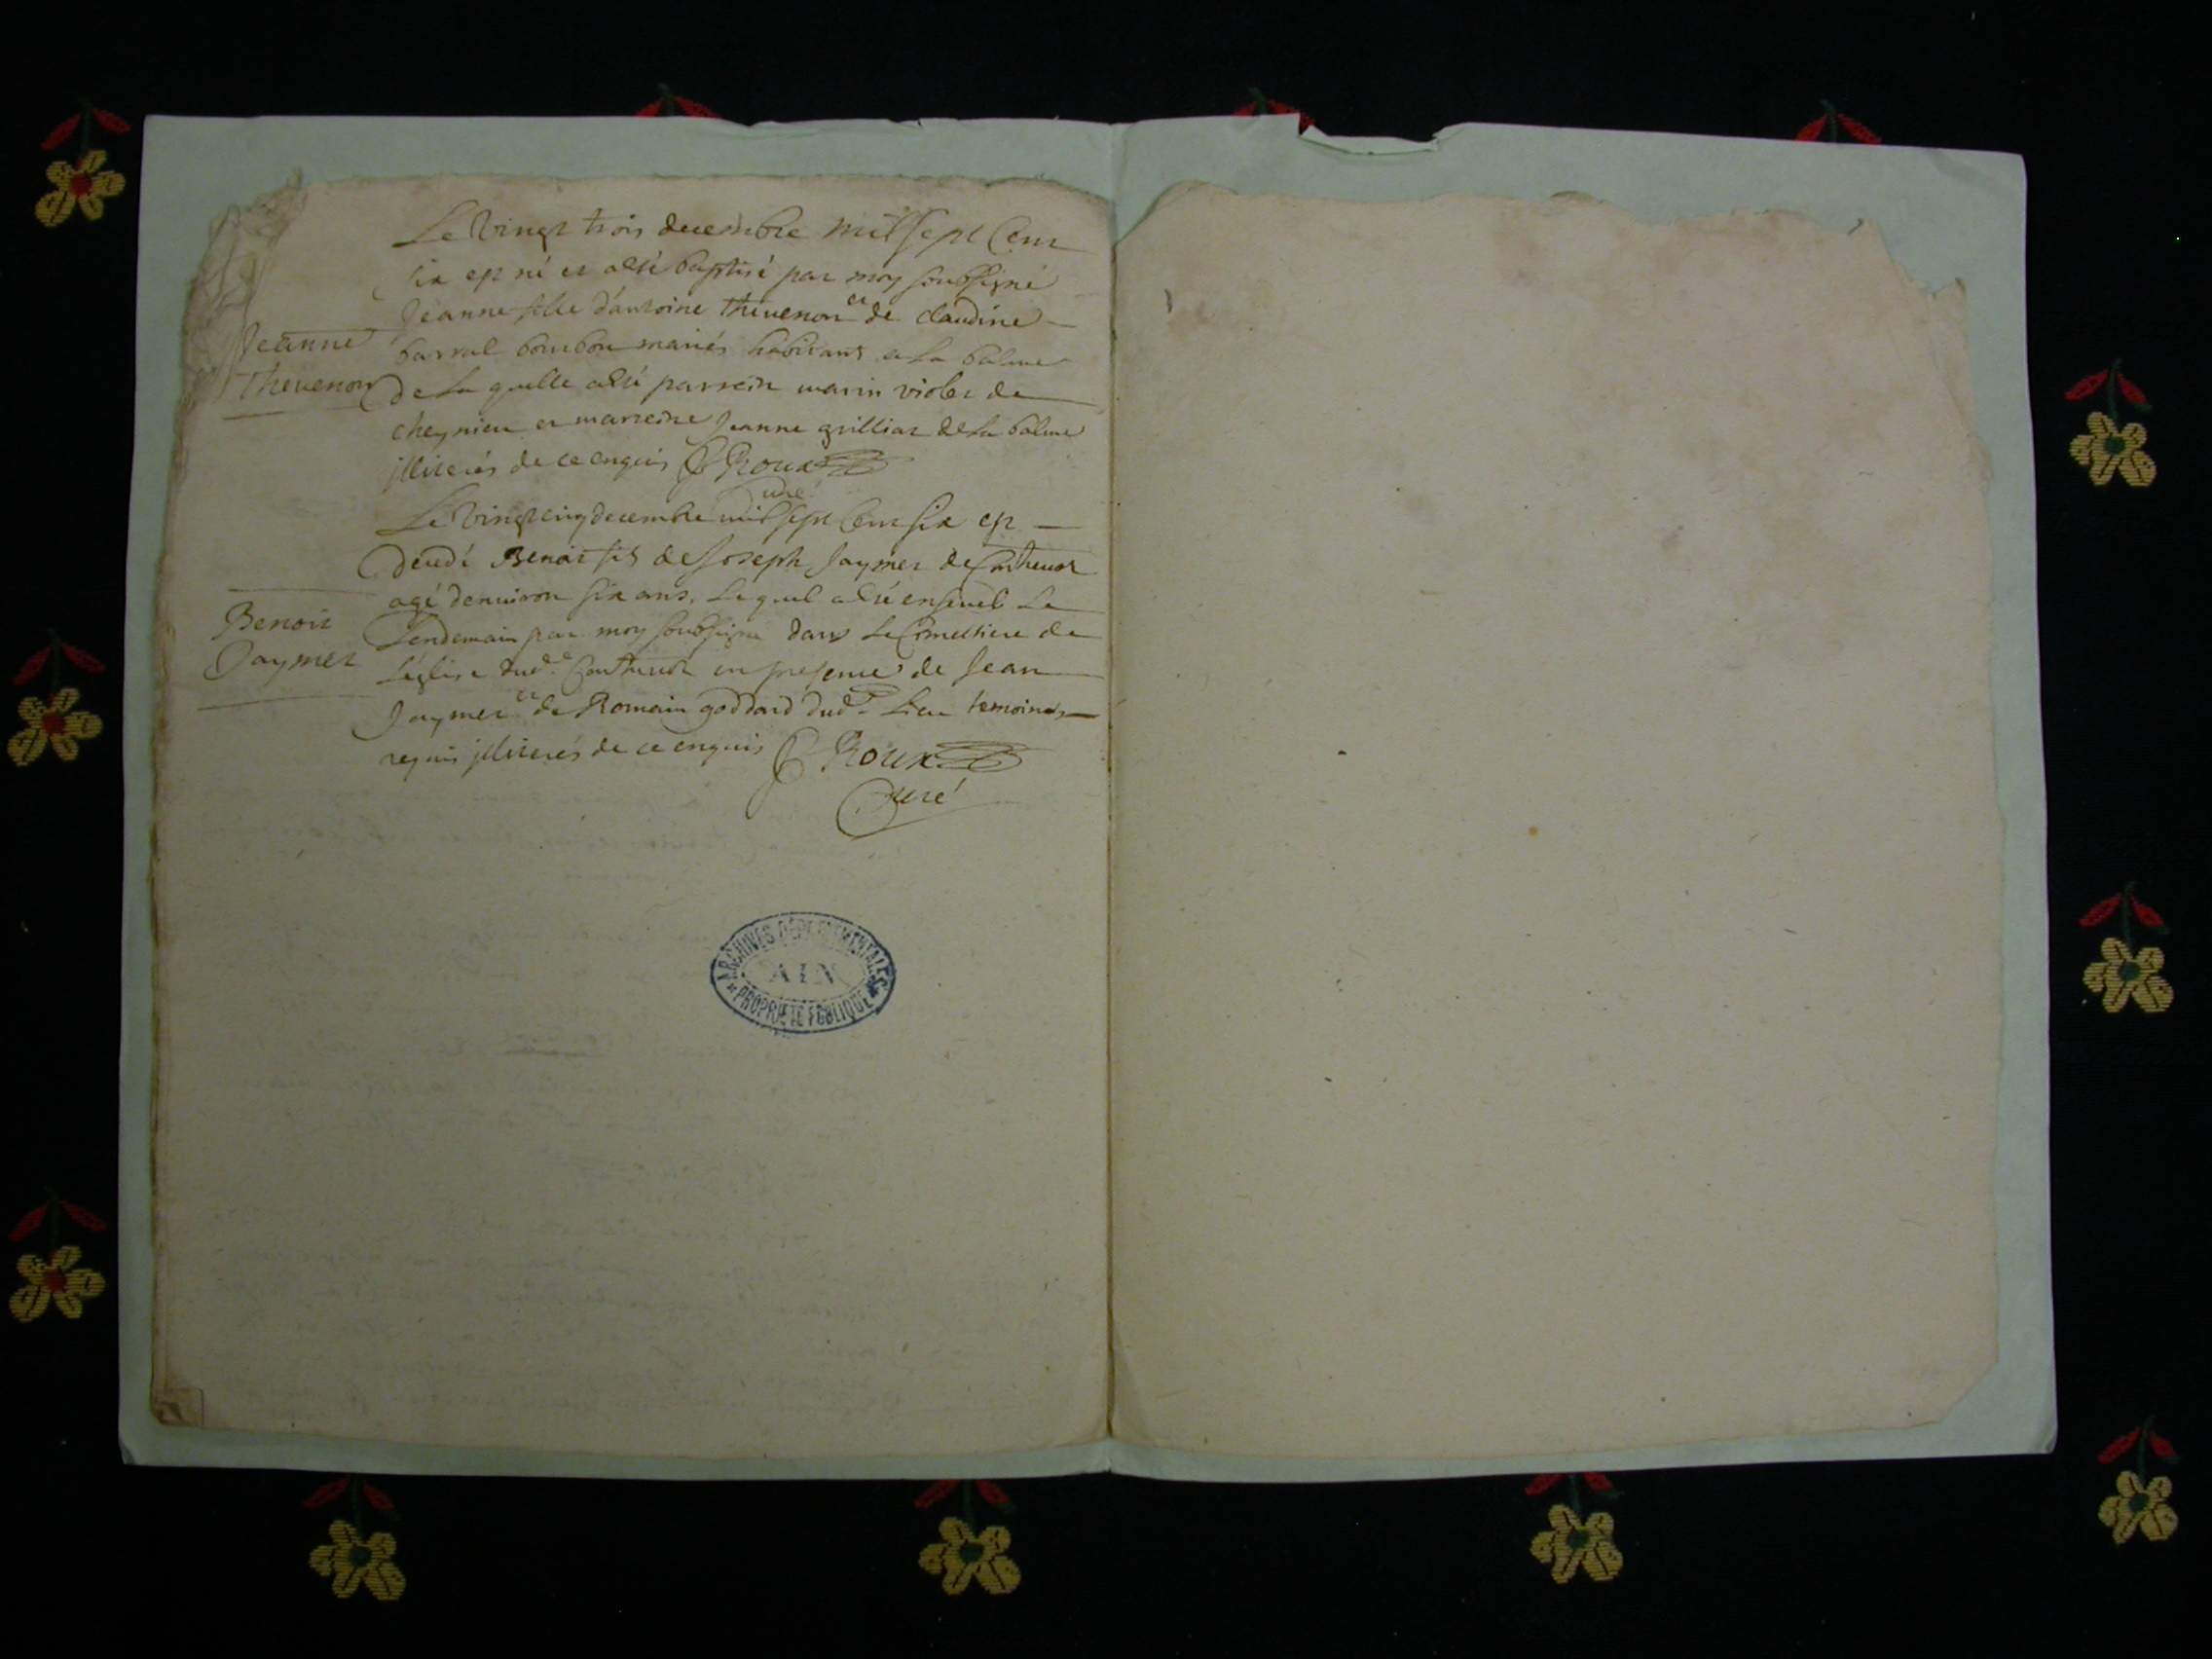 Le vingt trois decembre mil sept cent
six est né et a esté baptisé par moy soubsigné
Jeanne fille d'antoine Thevenon et de claudine
barral bonbon mariés habitants a La balme
Jeanne
Thevenon
de La quelle a esté parrein marin violet de
cheynieu et marreine Jeanne grilliat de La balme
illiterés de ce enquis Roux
curé
Le vingt cinq decembre mil sept cent six est
decedé Benoit fils de Joseph Jaymet de Conthevot
agé denviron six ans, Le quel a esté enseveli Le
Benoit
Jaymet
Lendemain par moy soubsigné dans Le Cimettiere de
L'église dud. Conthevot en presence de Jean
Jaymet et de Romain goddard dud. Lieu temoins
requis illiterés de ce enquis Roux
Curé
ARCHIVES DÉPARTEMENTALES
AIN
PROPRIÉTÉ PUBLIQUE